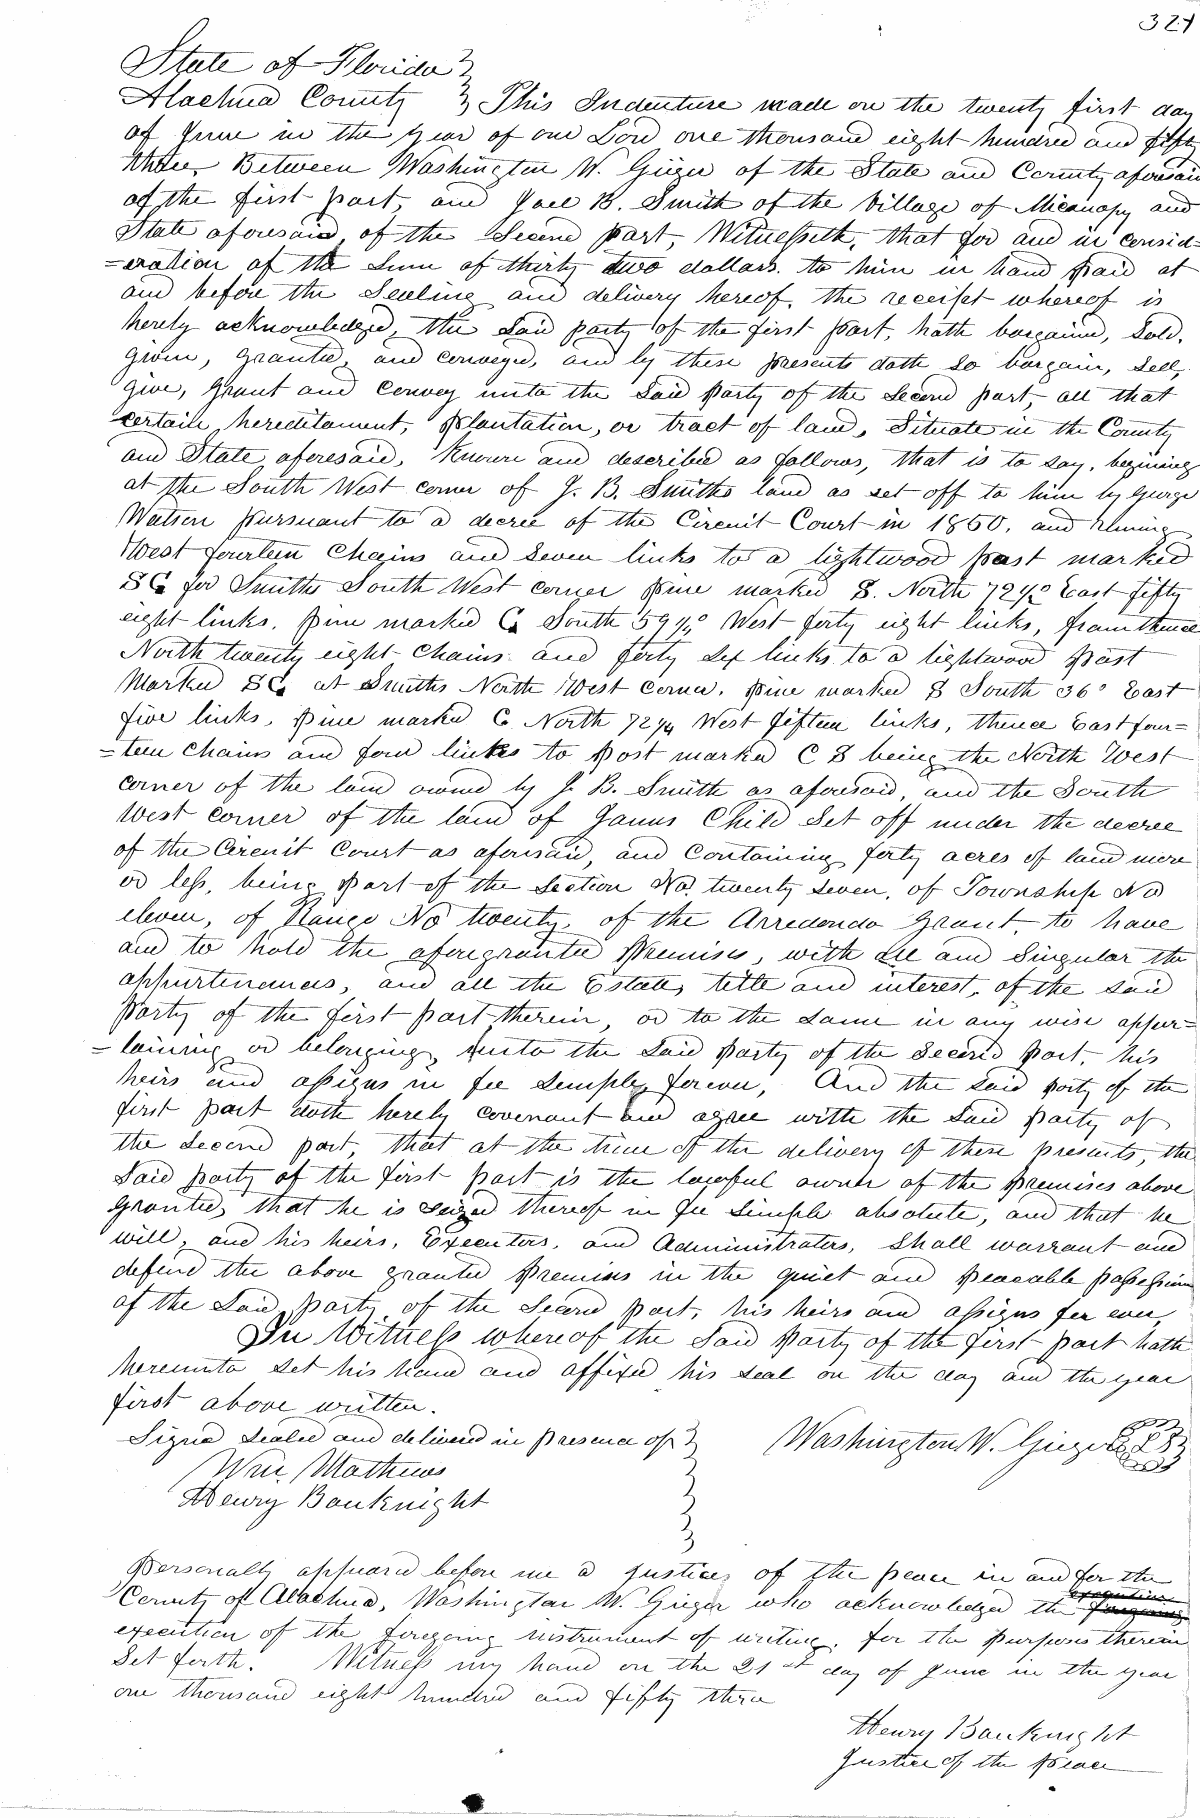 321
State of Florida }
Alachua County } This Indenture made on the twenty first day
of June in the year of our Lord one thousand eight hundred and fifty
three, Between Washington W. Geiger of the State and County aforesaid
of the first part, and Joel B. Smith of the Village of Micanopy and
State aforesaid, of the Second part, Witnesseth, that for and in consid=
=eration of the Sum of thirty two dollars. to him in hand paid at
and before the Sealing and delivery hereof, the receipt whereof is
hereby acknowledged, the Said party of the first part, hath bargained, Sold,
given, granted, and conveyed, and by these presents doth so bargain, sell,
give, grant and convey unto the Said Party of the Second part, all that
certain hereditament, plantation, or tract of land, Situate in the County
and State aforesaid, Known and described as follows, that is to say, begining
at the South West corner of J. B. Smiths land as set off to him by George
Watson pursuant to a decree of the Circuit Court in 1850, and runing
West fourteen Chains and Seven links to a lightwood post marked
S G for Smiths South West corner pine marked S. North 72½° East fifty
eight links. pine marked G South 59½° West forty eight links, from thence
North twenty eight Chains and forty six links to a lightwood post
Marked S G at Smiths North West Corner. pine marked S South 36° East
five links, pine marked G North 72¼ West fifteen links, thence East four=
=teen Chains and four links to post marked C S being the North West
corner of the land owned by J. B. Smith as aforesaid, and the South
West corner of the land of James Child Set off under the decree
of the Circuit Court as aforesaid, and Containing forty acres of land more
or less, being part of the Section No. twenty seven, of Township No
eleven, of Range No twenty, of the Arredondo Grant, to have
and to hold the aforegranted Premises, with all and Singular the
appurtenances, and all the Estate, title and interest, of the said
Party of the first part therein, or to the same in any wise apper=
=taining or belonging, unto the Said Party of the Second Part, his
heirs and assigns in fee simple, forever, And the said party of the
first part doth hereby covenant and agree with the Said Party of
the Second part, that at the time of the delivery of these presents, the
Said party of the first part is the lawful owner of the premises above
granted, that he is seized thereof in fee simple absolute, and that he
will, and his heirs, Executors, and Administrators, Shall warrant and
defend the above granted Premises in the quiet and peacable possession
of the Said party of the Second part, his heirs and assigns for ever,
In Witness whereof the Said Party of the first part hath
hereunto set his hand and affixed his seal on the day and the year
first above written.
Signed Sealed and delivered in presence of } Washington W. Geiger L S
Wm. Mathews
Henry Bauknight
Personally appeared before me a justice of the peace in and for the
County of Alachua, Washington W. Geiger who acknowledged the
execution of the foregoing instrument of writing, for the purposes therein
Set forth. Witness my hand on the 21st day of June in the year
one thousand eight hundred and fifty three
Henry Bauknight
Justice of the peace